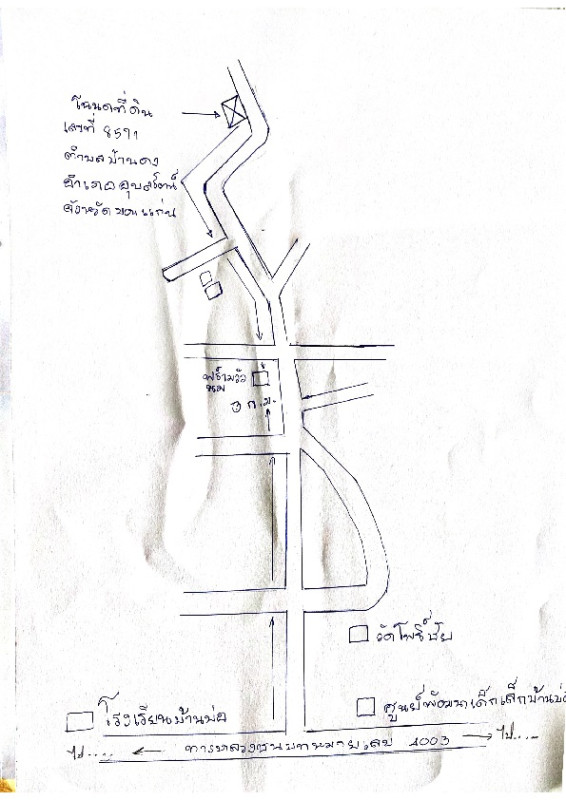 โฉนดที่ดิน
เลขที่ 8591
ตำบลบ้านดง
อำเภออุบลรัตน์
จังหวัดขอนแก่น
ฟาร์มวัว
นม
3 ก.ม.
วัดโพธิ์ชัย
โรงเรียนบ้านบ่อ
ศูนย์พัฒนาเด็กเล็กบ้านบ่อ
ไป.... ทางหลวงชนบทหมายเลข 4003 ไป....